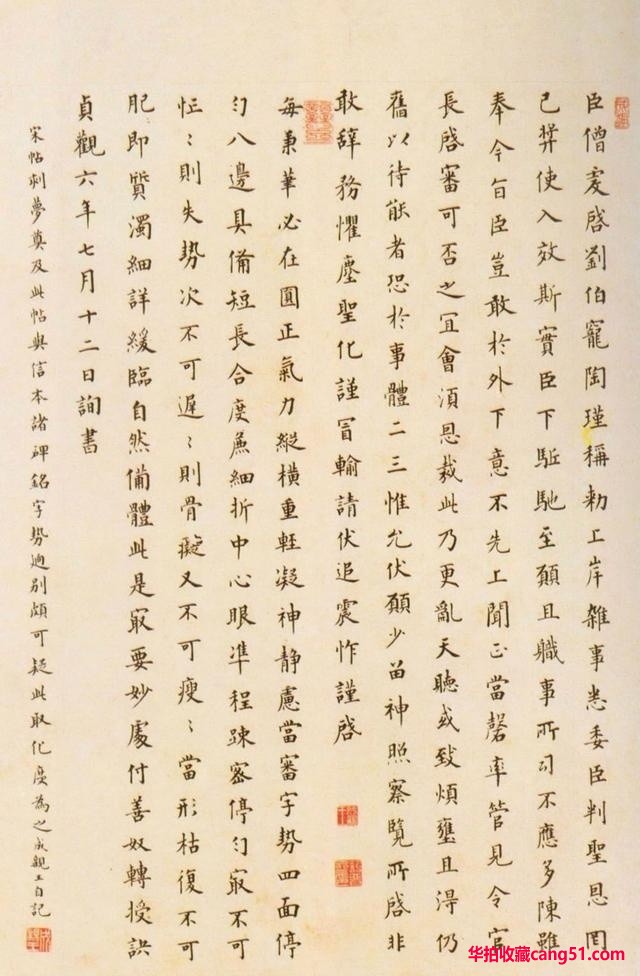 臣僧虔啓劉伯寵陶瑾稱勑上岸雜事悉委臣判聖恩罔
已弉使入效斯實臣下駈馳至願且職事所司不應多陳雖
奉今旨臣豈敢於外下意不先上聞正當罄率管見令官
長啓審可否之宜會湏恩裁此乃更亂天聽或致煩壅且淂仍
舊以待能者恐於事體二三惟允伏願少留神照察覽所啓非
敢辞務懼塵聖化謹冒輸請伏追震怍謹啓
每秉筆必在圓正氣力縱橫重輕凝神静慮當審字勢四面停
匀八邊具備短長合度麁細折中心眼准程踈密停匀寂不可
忙〻則失勢次不可遲〻則骨癡又不可瘦〻當形枯復不可
肥〻即質濁細詳緩臨自然備體此是寂要妙處付善奴轉授訣
貞觀六年七月十二日詢書
宋帖刺夢奠及此帖與信本諸碑銘字勢逈别頗可疑此取化度為之成親王自記
华拍收藏cang51.com